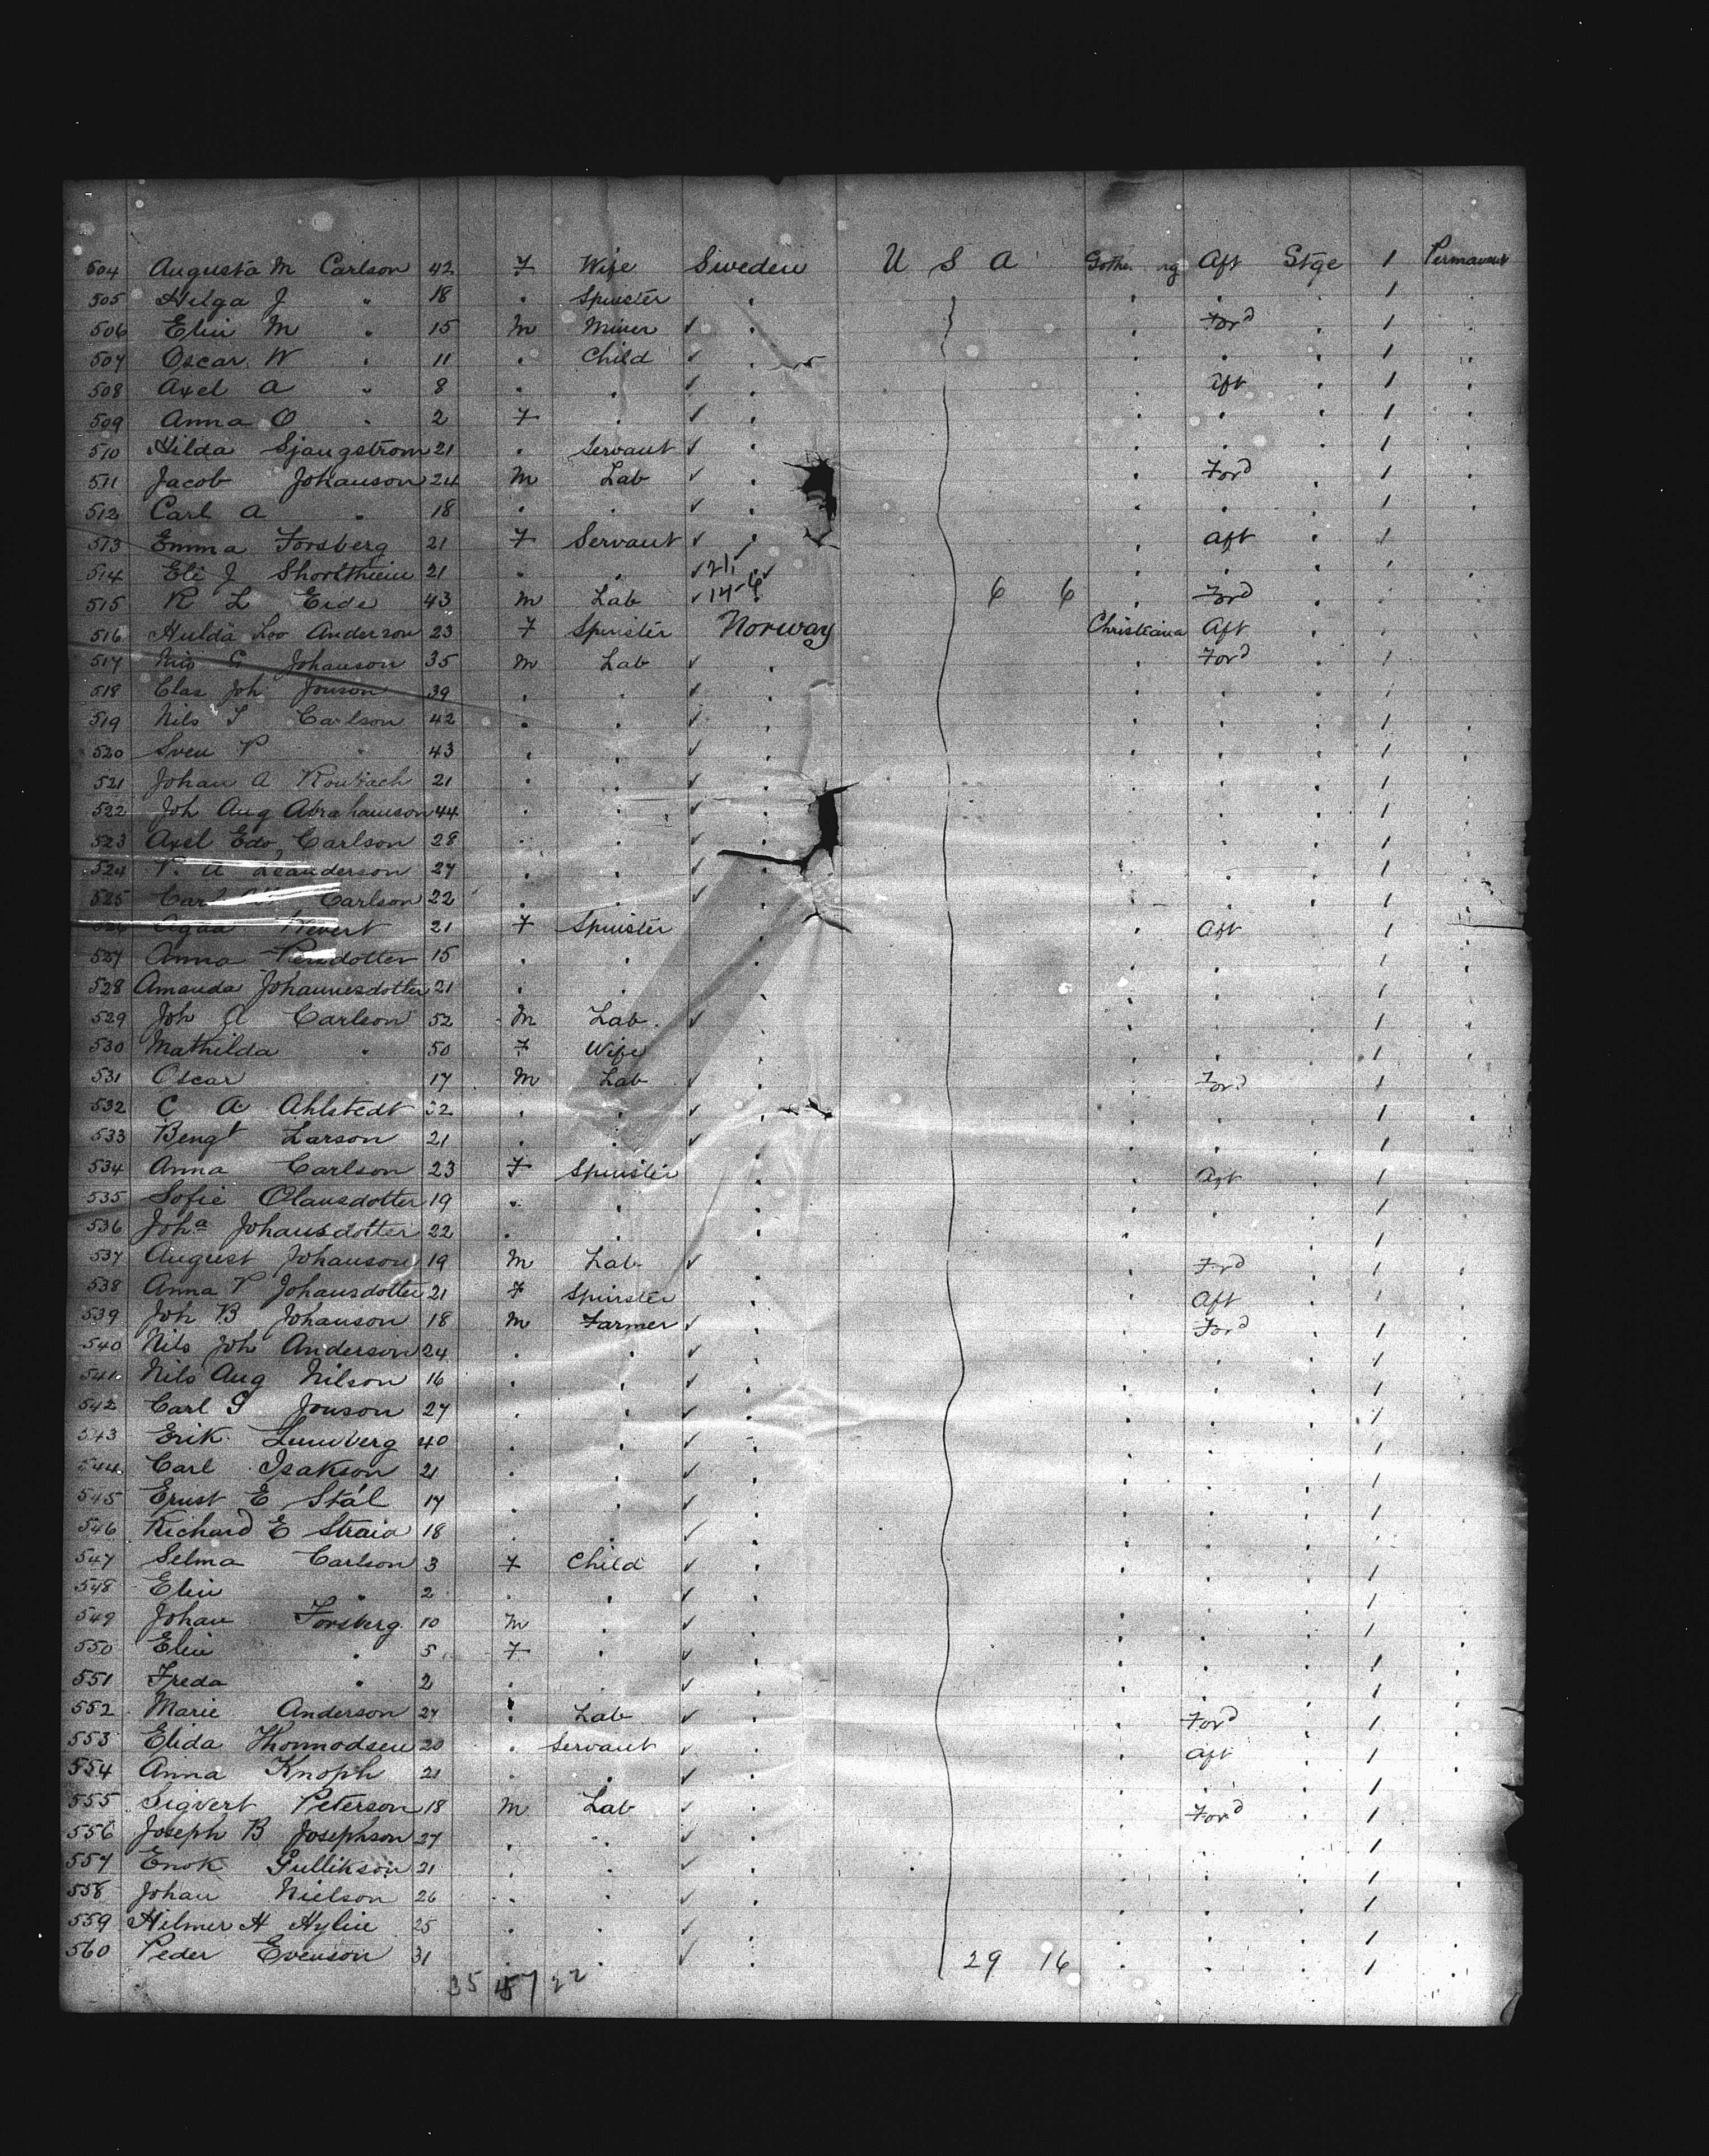 504 Augusta M Carlson 42 F Wife Sweden U S A Gothe rg Aft Stge 1 Permanent
505 Helga J " 18 " Spinster " " " " 1
506 Elin M " 15 M Miner ✓ " " Ford " 1 "
507 Oscar W " 11 " Child ✓ " " " " 1 "
508 Axel A " 8 " " ✓ " " Aft " 1 "
509 Anna O " 2 F " ✓ " " " " 1 "
510 Hilda Sjangstrom 21 " Servant ✓ " " " " 1 "
511 Jacob Johanson 24 M Lab ✓ " " Ford " 1 "
512 Carl A " 18 " " ✓ " " " " 1
513 Emma Forsberg 21 F Servant ✓ " " Aft " 1
514 Eli J 21 " " ✓ 21 " " " 1
515 R L Eide 43 M Lab ✓ 14-6 6 6 " Ford "
516 Hulda Anderson 23 F Spinster Norway Christiana Aft "
517 Johanson 35 M Lab ✓ " " Ford " 1
518 Clas Joh Jonson 39 " " ✓ " " " "
519 Nils Carlson 42 " " ✓ " " " " 1 "
520 Sven P " 43 " " ✓ " " " " 1 "
521 Johan A 21 " " ✓ " " " " 1 "
522 Joh Aug Abrahamson 44 " " ✓ " " " " 1 "
523 Axel Edv Carlson 28 " " ✓ " " " " 1 "
524 P. A Leanderson 27 " " ✓ " " " " 1 "
525 Carl Carlson 22 " " ✓ " " " " 1
21 F Spinster " Aft " 1
527 Anna Persdotter 15 " " " " " " 1
528 Amanda Johannesdotter 21 " " " " " " 1
529 Joh A Carlson 52 M Lab ✓ " " " " 1
530 Mathilda " 50 F Wife " " " " 1 "
531 Oscar 17 M Lab ✓ " " Ford " 1
532 C A Ahlstedt 32 " " ✓ " " " " 1 "
533 Bengt Larson 21 " " ✓ " " " " 1
534 Anna Carlson 23 F Spinster " " Aft " 1
535 Sofie Olausdotter 19 " " " " " " 1
536 Joha Johansdotter 22 " " " " " " 1
537 August Johanson 19 M Lab ✓ " " Ford " 1 "
538 Anna P Johansdotter 21 F Spinster " " Aft " 1
539 Joh B Johanson 18 M Farmer ✓ " " Ford " 1 "
540 Nils Joh Anderson 24 " " ✓ " " " " 1
541 Nils Aug Nilson 16 " " ✓ " " " " 1
542 Carl G Jonson 27 " " ✓ " " " " 1
543 Erik 40 " " ✓ " " " " 1
544 Carl Isakson 21 " " ✓ " " " " 1
545 Ernst E Stål 17 " " ✓ " " " " 1
546 Richard E 18 " " ✓ " " " "
547 Selma Carlson 3 F Child ✓ " " " " 1
548 Elin " 2 " " ✓ " " " " 1
549 Johan Forsberg 10 M " ✓ " " " " 1
550 Elin " 5 F " ✓ " " " " 1 "
551 Freda " 2 " " ✓ " " " " 1
552 Marie Anderson 27 " Lab ✓ " " Ford " 1 "
553 Elida Thormodsen 20 " Servant ✓ " " Aft " 1
554 Anna Knoph 21 " " ✓ " " " " 1
555 Sigvert Peterson 18 M Lab ✓ " " Ford " 1
556 Joseph B Josephson 27 " " ✓ " " " " 1
557 Enok Gullikson 21 " " ✓ " " " " 1 "
558 Johan Nielson 26 " " ✓ " " " " 1
559 Hilmer H Hylin 25 " " ✓ " " " " 1 "
560 Peder Evenson 31 " " ✓ " 29 16 " " " 1 "
35 57 22